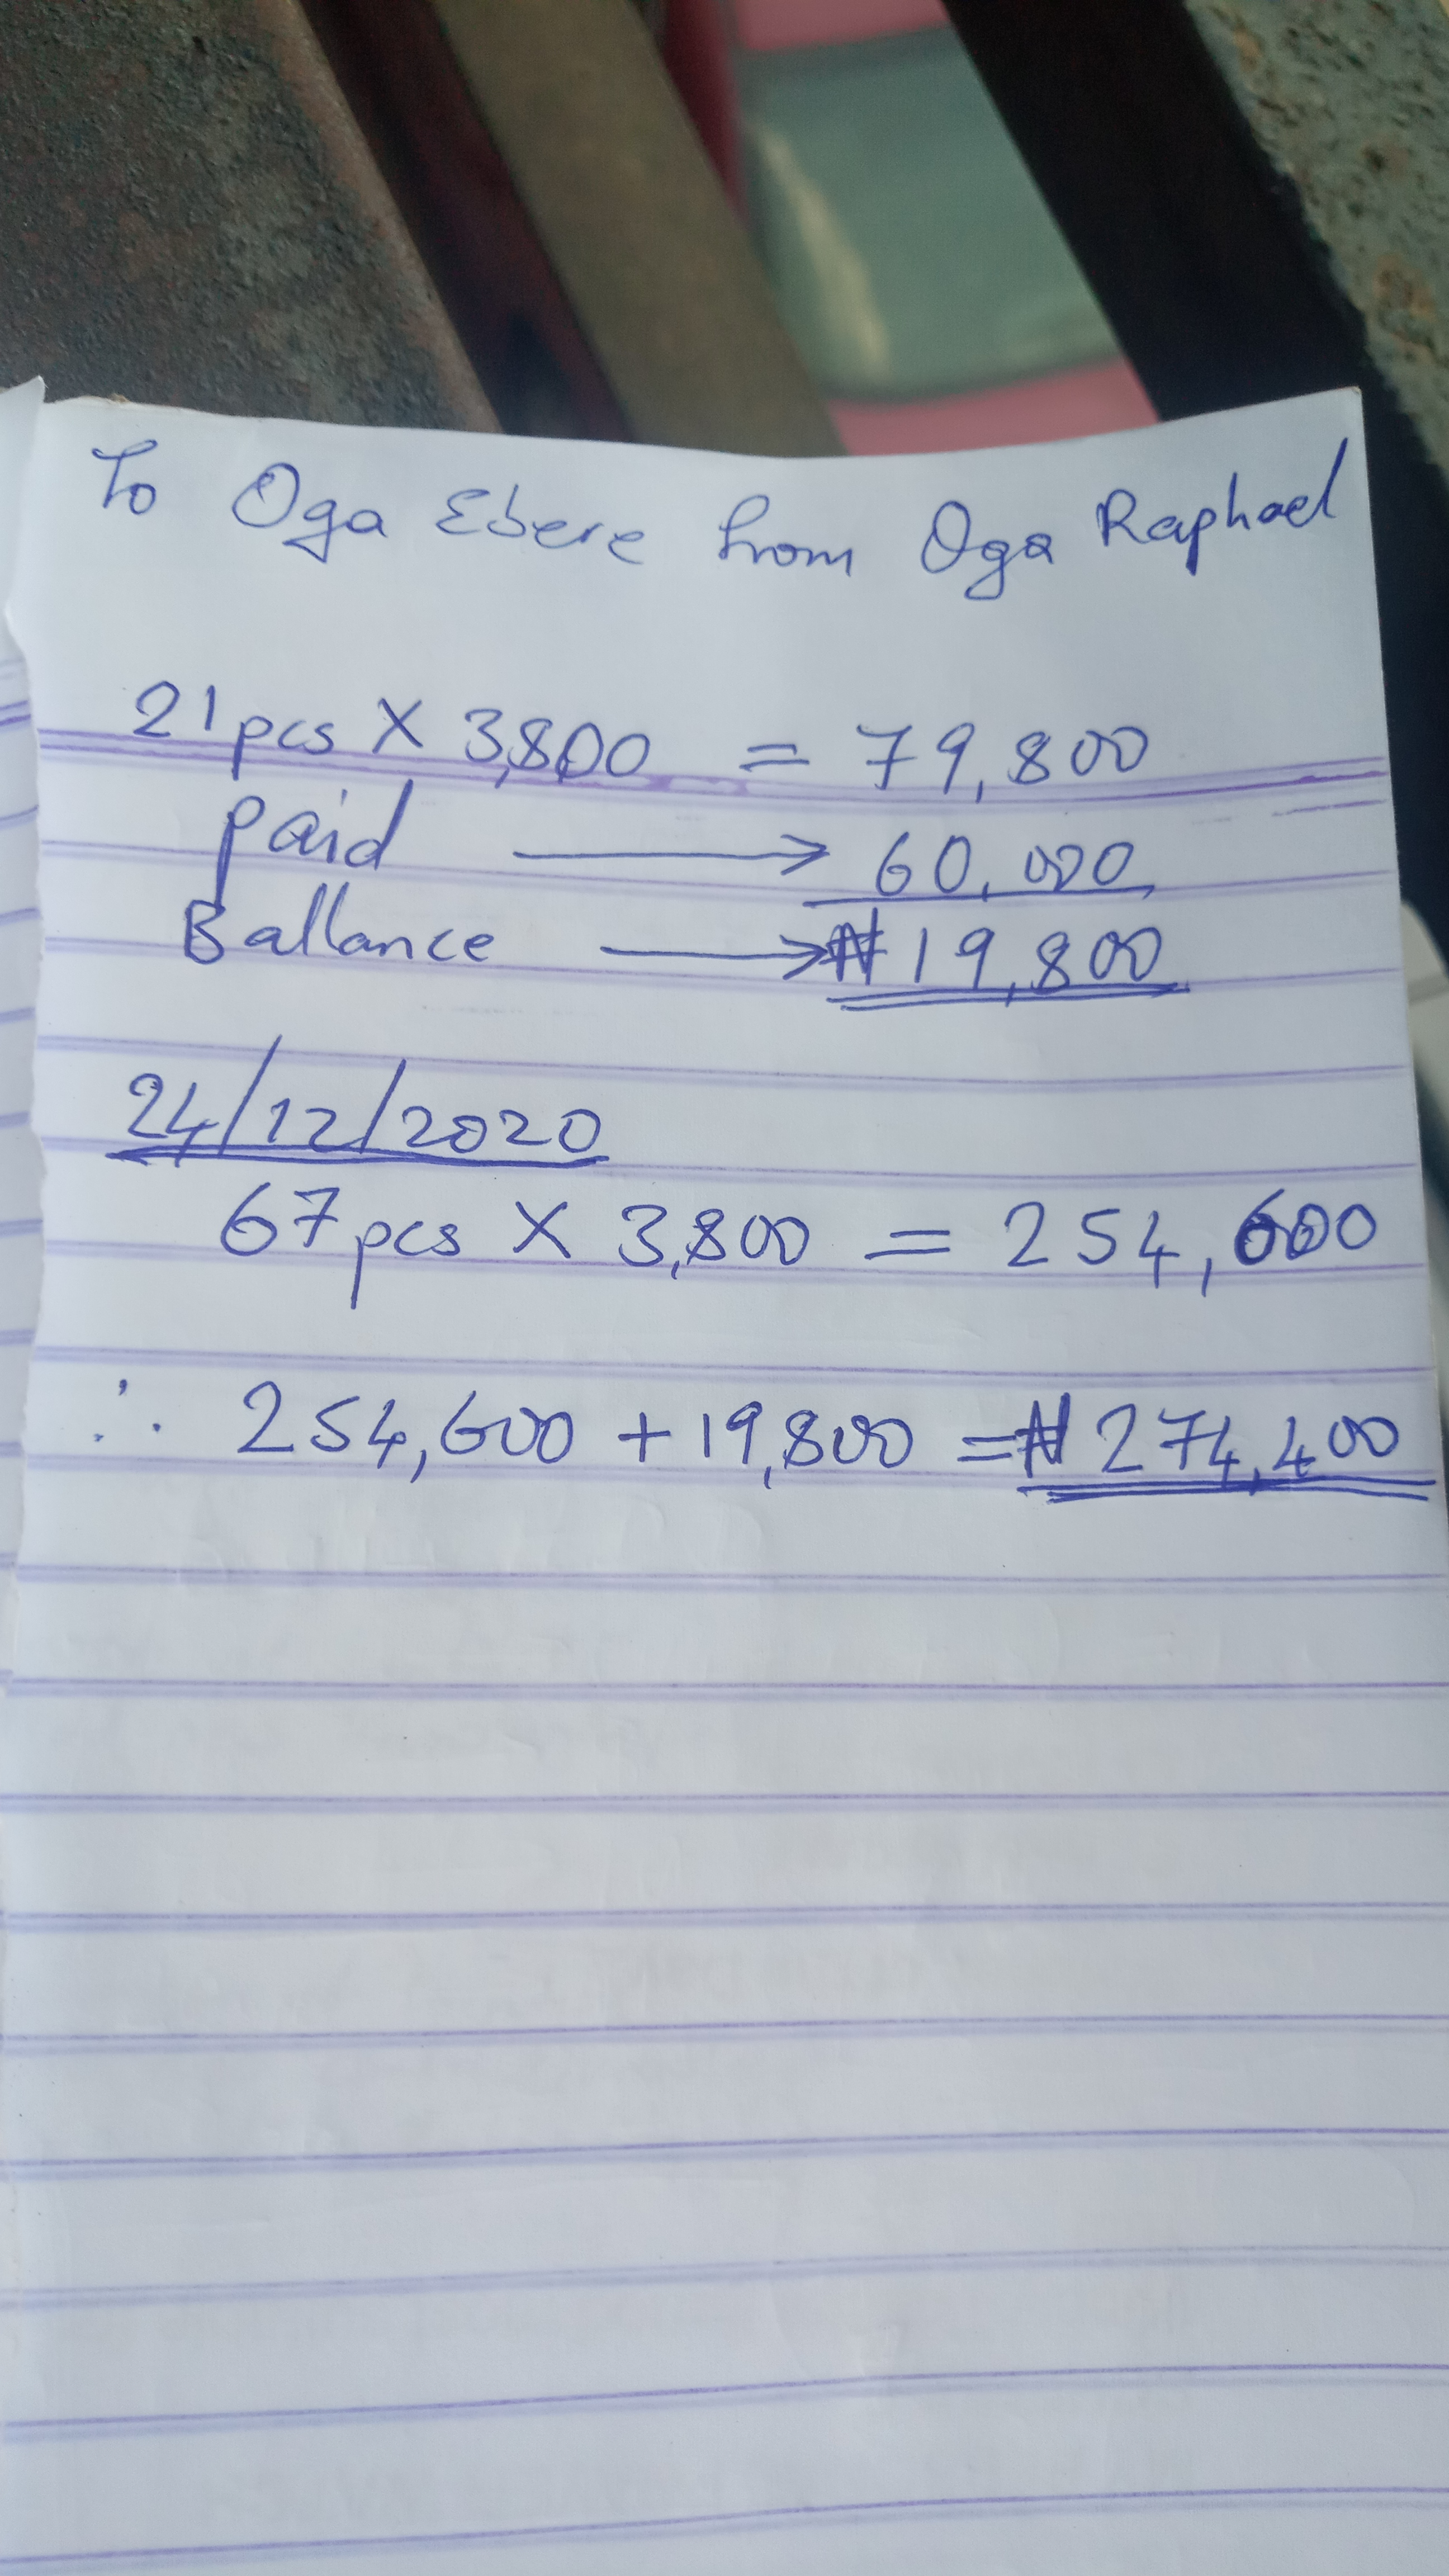 To Oga Ebere from Oga Raphael
21pcs X 3,800 = 79,800
paid → 60,000
Ballance → ₦19,800
24/12/2020
67pcs X 3,800 = 254,600
∴ 254,600 + 19,800 = ₦274,400